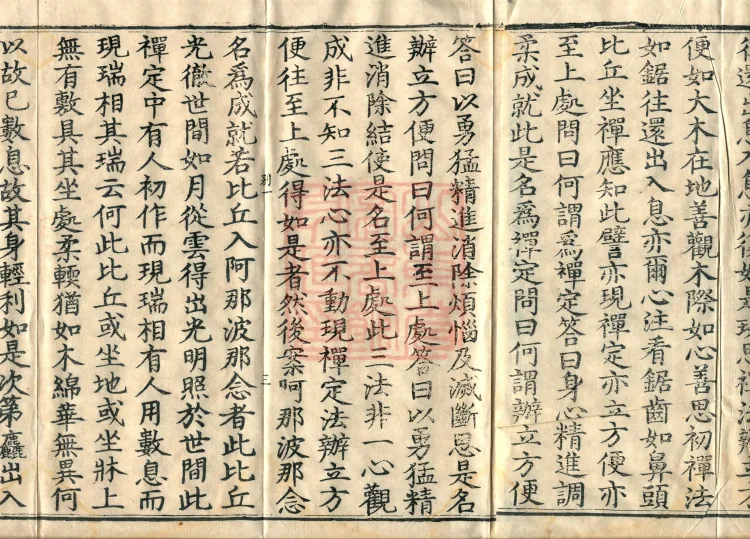 便如大木在地善觀木際如心善思初禪法
如鋸往還出入息亦爾心注看鋸齒如鼻頭
比丘坐禪應知此譬亦現禪定亦立方便亦
至上處問曰何謂為禪定答曰身心精進調
柔成就此是名為禪定問曰何謂辦立方便
答曰以勇猛精進消除煩惱及滅斷思是名
辦立方便問曰何謂至上處答曰以勇猛精
進消除結使是名至上處此三法非一心觀
成非不知三法心亦不動現禪定法辦立方
便往至上處得如是者然後案阿那波那念
三
名為成就若比丘入阿那波那念者此比丘
光徹世間如月從雲得出光明照於世間此
禪定中有人初作而現瑞相有人用數息而
現瑞相其瑞云何此比丘或坐地或坐牀上
無有敷具其坐處柔輭猶如木綿華無異何
以故已數息故其身輕利如是次第麤出入